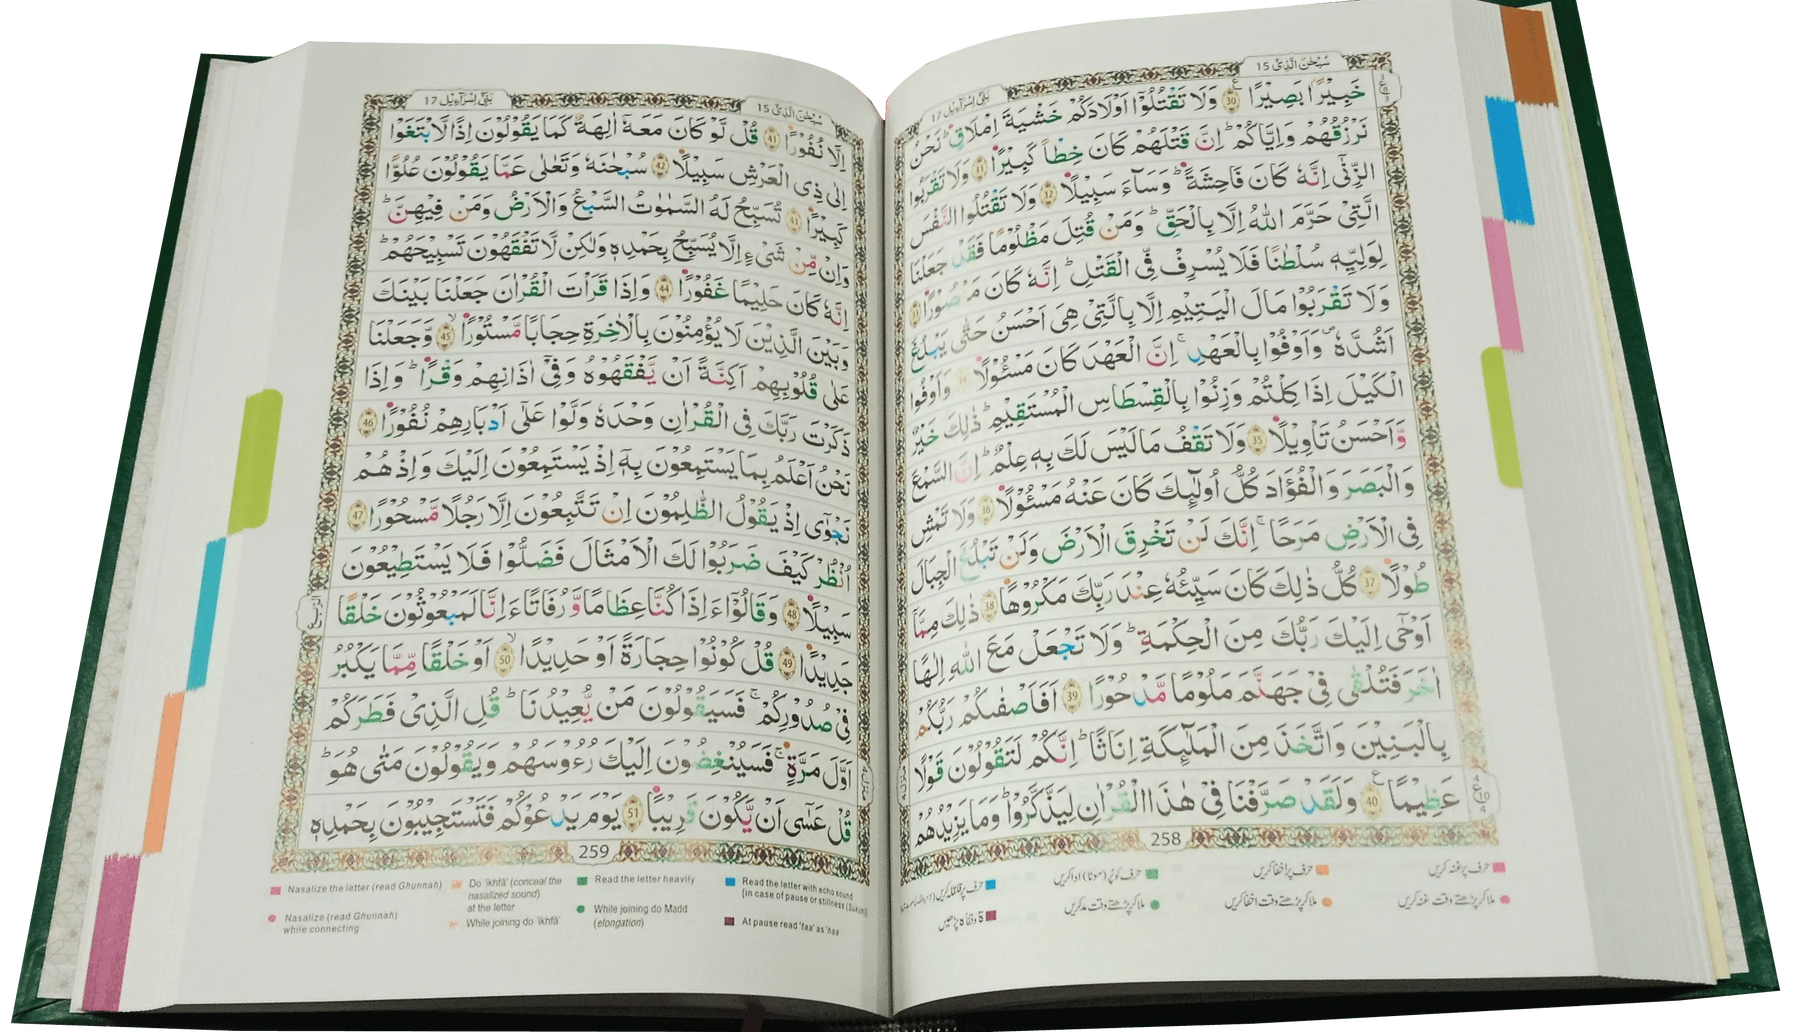 سُبْحٰنَ الَّذِيْ 15
بَنِيْٓ اِسْرَآءِيْل 17
خَبِيْرًۢا بَصِيْرًا ﴿30﴾ وَلَا تَقْتُلُوْٓا اَوْلَادَكُمْ خَشْيَةَ اِمْلَاقٍ ؕ نَحْنُ
نَرْزُقُهُمْ وَاِيَّاكُمْ ؕ اِنَّ قَتْلَهُمْ كَانَ خِطْاً كَبِيْرًا ﴿31﴾ وَلَا تَقْرَبُوا
الزِّنٰٓى اِنَّهٗ كَانَ فَاحِشَةً ؕ وَسَآءَ سَبِيْلًا ﴿32﴾ وَلَا تَقْتُلُوا النَّفْسَ
الَّتِيْ حَرَّمَ اللّٰهُ اِلَّا بِالْحَقِّ ؕ وَمَنْ قُتِلَ مَظْلُوْمًا فَقَدْ جَعَلْنَا
لِوَلِيِّهٖ سُلْطٰنًا فَلَا يُسْرِفْ فِّي الْقَتْلِ ؕ اِنَّهٗ كَانَ مَنْصُوْرًا ﴿33﴾
وَلَا تَقْرَبُوْا مَالَ الْيَتِيْمِ اِلَّا بِالَّتِيْ هِيَ اَحْسَنُ حَتّٰى يَبْلُغَ
اَشُدَّهٗ ۪ وَاَوْفُوْا بِالْعَهْدِ ۚ اِنَّ الْعَهْدَ كَانَ مَسْـُٔوْلًا ﴿34﴾ وَاَوْفُوا
الْكَيْلَ اِذَا كِلْتُمْ وَزِنُوْا بِالْقِسْطَاسِ الْمُسْتَقِيْمِ ؕ ذٰلِكَ خَيْرٌ
وَّاَحْسَنُ تَاْوِيْلًا ﴿35﴾ وَلَا تَقْفُ مَا لَيْسَ لَكَ بِهٖ عِلْمٌ ؕ اِنَّ السَّمْعَ
وَالْبَصَرَ وَالْفُؤَادَ كُلُّ اُولٰٓئِكَ كَانَ عَنْهُ مَسْـُٔوْلًا ﴿36﴾ وَلَا تَمْشِ
فِي الْاَرْضِ مَرَحًا ۚ اِنَّكَ لَنْ تَخْرِقَ الْاَرْضَ وَلَنْ تَبْلُغَ الْجِبَالَ
طُوْلًا ﴿37﴾ كُلُّ ذٰلِكَ كَانَ سَيِّئُهٗ عِنْدَ رَبِّكَ مَكْرُوْهًا ﴿38﴾ ذٰلِكَ مِمَّآ
اَوْحٰٓى اِلَيْكَ رَبُّكَ مِنَ الْحِكْمَةِ ؕ وَلَا تَجْعَلْ مَعَ اللّٰهِ اِلٰهًا
اٰخَرَ فَتُلْقٰى فِيْ جَهَنَّمَ مَلُوْمًا مَّدْحُوْرًا ﴿39﴾ اَفَاَصْفٰىكُمْ رَبُّكُمْ
بِالْبَنِيْنَ وَاتَّخَذَ مِنَ الْمَلٰٓئِكَةِ اِنَاثًا ؕ اِنَّكُمْ لَتَقُوْلُوْنَ قَوْلًا
عَظِيْمًا ﴿40﴾ وَلَقَدْ صَرَّفْنَا فِيْ هٰذَا الْقُرْاٰنِ لِيَذَّكَّرُوْا ؕ وَمَا يَزِيْدُهُمْ
258
حرف پر غنہ کریں
حرف پر اخفا کریں
حرف کو پُر (موٹا) ادا کریں
حرف پر قلقلہ کریں
ملا کر پڑھتے وقت غنہ کریں
ملا کر پڑھتے وقت اخفا کریں
ملا کر پڑھتے وقت مد کریں
ۃ وقفاً ہ پڑھیں
سُبْحٰنَ الَّذِيْ 15
بَنِيْٓ اِسْرَآءِيْل 17
اِلَّا نُفُوْرًا ﴿41﴾ قُلْ لَّوْ كَانَ مَعَهٗٓ اٰلِهَةٌ كَمَا يَقُوْلُوْنَ اِذًا لَّابْتَغَوْا
اِلٰى ذِي الْعَرْشِ سَبِيْلًا ﴿42﴾ سُبْحٰنَهٗ وَتَعٰلٰى عَمَّا يَقُوْلُوْنَ عُلُوًّا
كَبِيْرًا ﴿43﴾ تُسَبِّحُ لَهُ السَّمٰوٰتُ السَّبْعُ وَالْاَرْضُ وَمَنْ فِيْهِنَّ ؕ
وَاِنْ مِّنْ شَيْءٍ اِلَّا يُسَبِّحُ بِحَمْدِهٖ وَلٰكِنْ لَّا تَفْقَهُوْنَ تَسْبِيْحَهُمْ ؕ
اِنَّهٗ كَانَ حَلِيْمًا غَفُوْرًا ﴿44﴾ وَاِذَا قَرَاْتَ الْقُرْاٰنَ جَعَلْنَا بَيْنَكَ
وَبَيْنَ الَّذِيْنَ لَا يُؤْمِنُوْنَ بِالْاٰخِرَةِ حِجَابًا مَّسْتُوْرًا ﴿45﴾ وَّجَعَلْنَا
عَلٰى قُلُوْبِهِمْ اَكِنَّةً اَنْ يَّفْقَهُوْهُ وَفِيْٓ اٰذَانِهِمْ وَقْرًا ؕ وَاِذَا
ذَكَرْتَ رَبَّكَ فِي الْقُرْاٰنِ وَحْدَهٗ وَلَّوْا عَلٰٓى اَدْبَارِهِمْ نُفُوْرًا ﴿46﴾
نَحْنُ اَعْلَمُ بِمَا يَسْتَمِعُوْنَ بِهٖٓ اِذْ يَسْتَمِعُوْنَ اِلَيْكَ وَاِذْ هُمْ
نَجْوٰٓى اِذْ يَقُوْلُ الظّٰلِمُوْنَ اِنْ تَتَّبِعُوْنَ اِلَّا رَجُلًا مَّسْحُوْرًا ﴿47﴾
اُنْظُرْ كَيْفَ ضَرَبُوْا لَكَ الْاَمْثَالَ فَضَلُّوْا فَلَا يَسْتَطِيْعُوْنَ
سَبِيْلًا ﴿48﴾ وَقَالُوْٓا ءَاِذَا كُنَّا عِظَامًا وَّرُفَاتًا ءَاِنَّا لَمَبْعُوْثُوْنَ خَلْقًا
جَدِيْدًا ﴿49﴾ قُلْ كُوْنُوْا حِجَارَةً اَوْ حَدِيْدًا ﴿50﴾ اَوْ خَلْقًا مِّمَّا يَكْبُرُ
فِيْ صُدُوْرِكُمْ ۚ فَسَيَقُوْلُوْنَ مَنْ يُّعِيْدُنَا ؕ قُلِ الَّذِيْ فَطَرَكُمْ
اَوَّلَ مَرَّةٍ ۚ فَسَيُنْغِضُوْنَ اِلَيْكَ رُءُوْسَهُمْ وَيَقُوْلُوْنَ مَتٰى هُوَ ؕ
قُلْ عَسٰٓى اَنْ يَّكُوْنَ قَرِيْبًا ﴿51﴾ يَوْمَ يَدْعُوْكُمْ فَتَسْتَجِيْبُوْنَ بِحَمْدِهٖ
259
Nasalize the letter (read Ghunnah)
Do 'ikhfā' (conceal the nasalized sound) at the letter
Read the letter heavily
Read the letter with echo sound
[in case of pause or stillness (Sukun)]
Nasalize (read Ghunnah) while connecting
While joining do 'Ikhfā'
While joining do Madd (elongation)
At pause read 'taa' as 'haa'